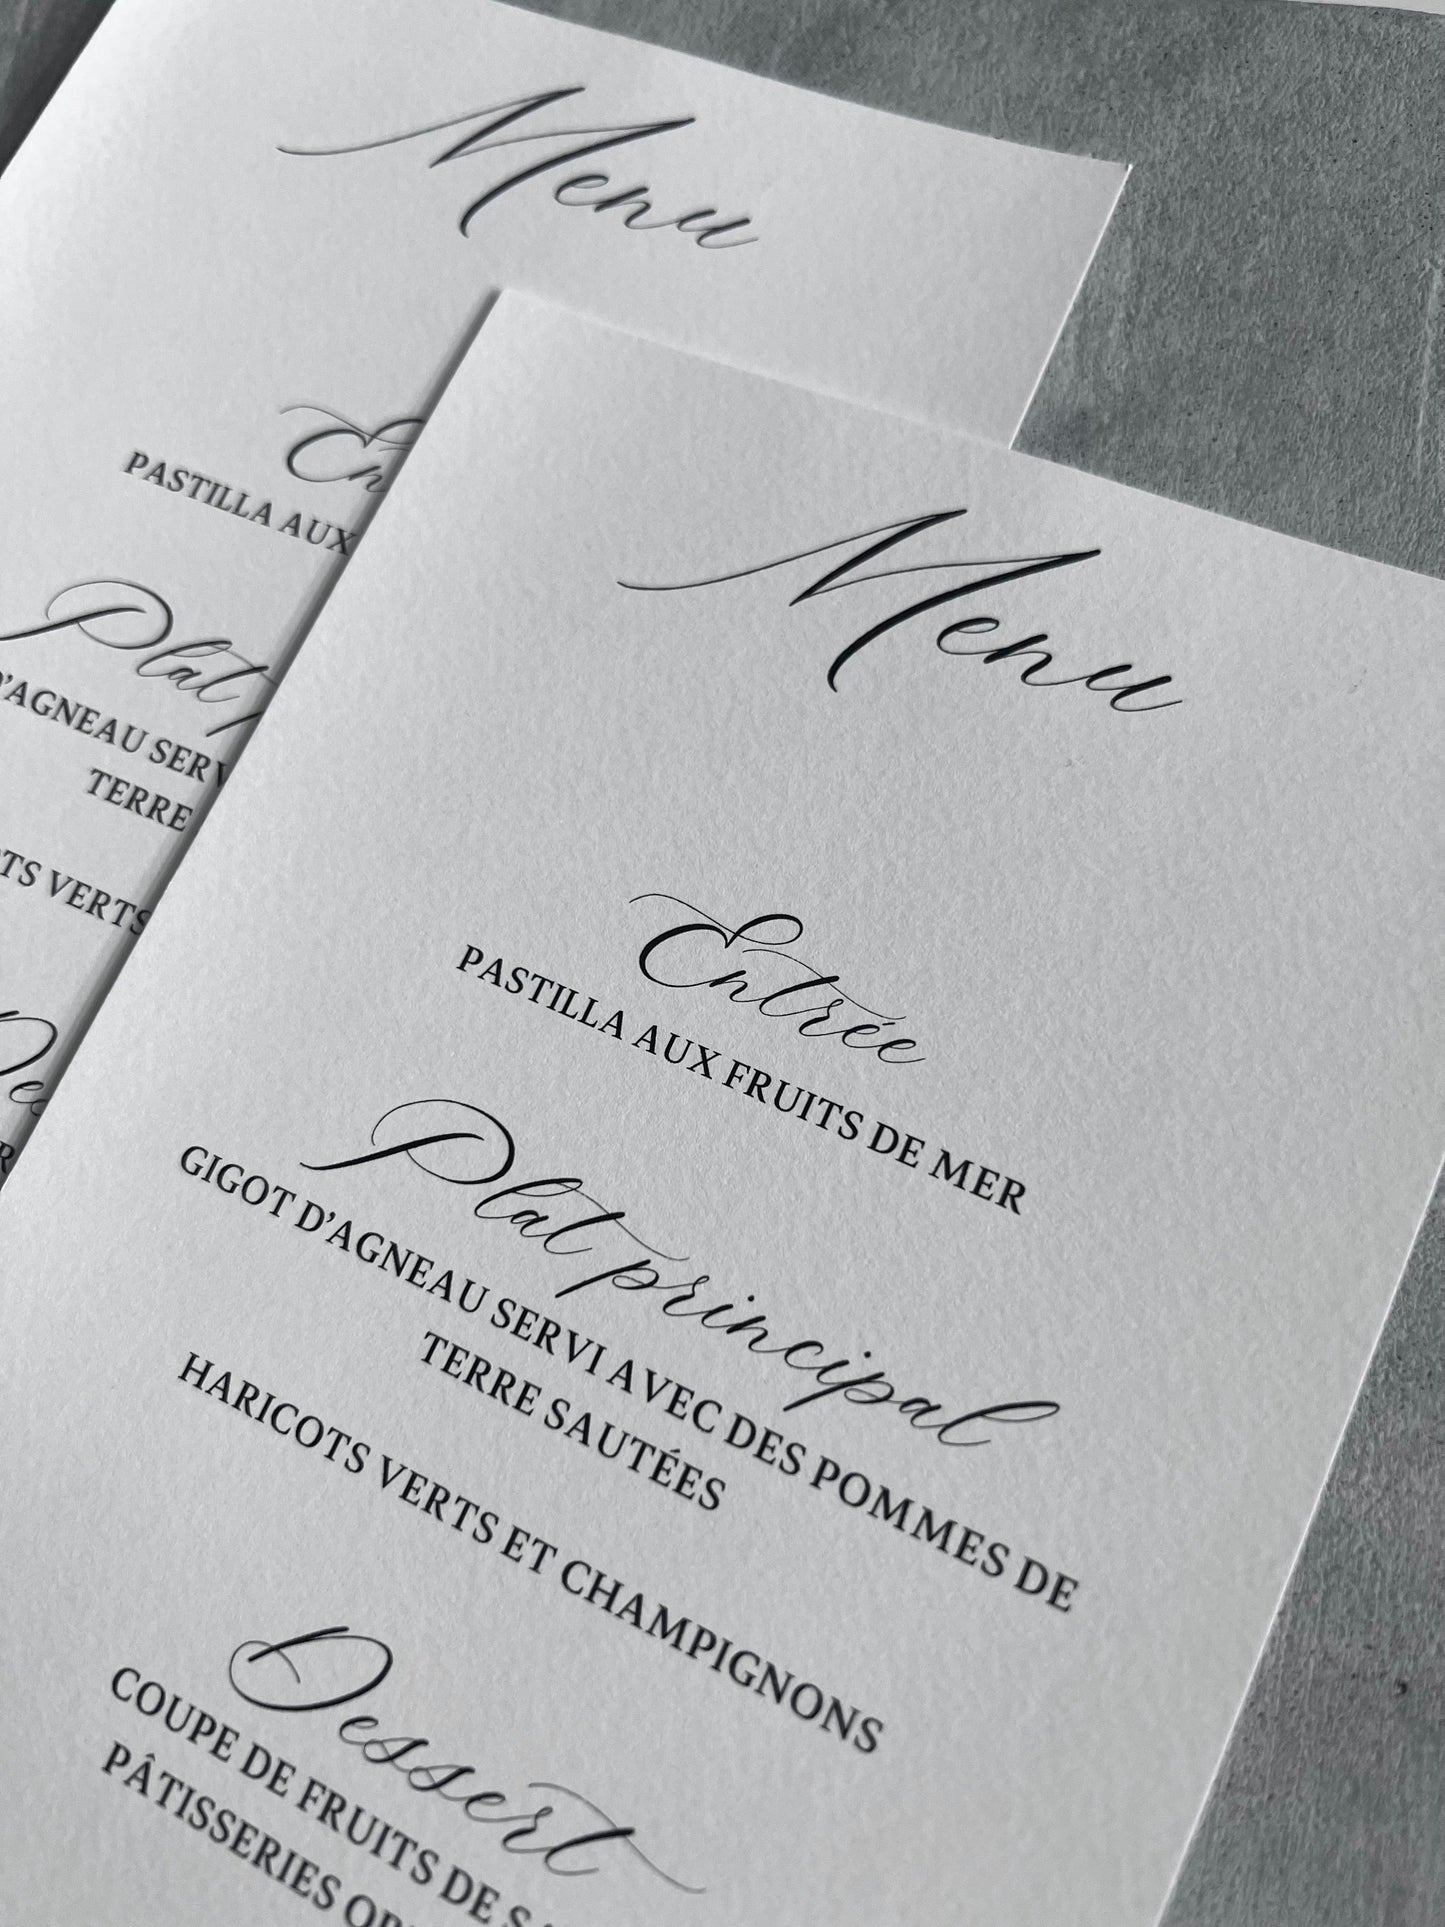 Menu
PASTILLA AUX
Plat
D'AGNEAU
TERRE
VERTS
Menu
Entrée
PASTILLA AUX FRUITS DE MER
Plat principal
GIGOT D'AGNEAU SERVI AVEC DES POMMES DE
TERRE SAUTÉES
HARICOTS VERTS ET CHAMPIGNONS
Dessert
COUPE DE FRUITS DE
PÂTISSERIES